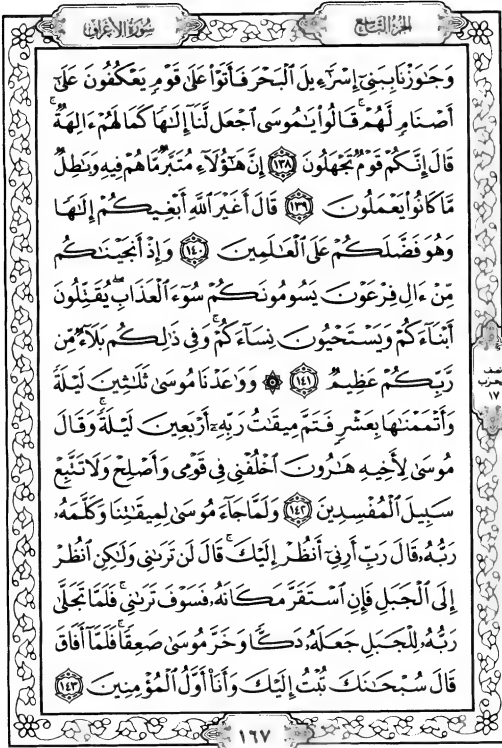 سُورَةُ الأَعْرَافِ
الجُزْءُ التَّاسِعُ
وَجَٰوَزْنَا بِبَنِىٓ إِسْرَٰٓءِيلَ ٱلْبَحْرَ فَأَتَوْا۟ عَلَىٰ قَوْمٍ يَعْكُفُونَ عَلَىٰٓ
أَصْنَامٍ لَّهُمْ ۚ قَالُوا۟ يَٰمُوسَى ٱجْعَل لَّنَآ إِلَٰهًا كَمَا لَهُمْ ءَالِهَةٌ ۚ
قَالَ إِنَّكُمْ قَوْمٌ تَجْهَلُونَ ﴿١٣٨﴾ إِنَّ هَٰٓؤُلَآءِ مُتَبَّرٌ مَّا هُمْ فِيهِ وَبَٰطِلٌ
مَّا كَانُوا۟ يَعْمَلُونَ ﴿١٣٩﴾ قَالَ أَغَيْرَ ٱللَّهِ أَبْغِيكُمْ إِلَٰهًا
وَهُوَ فَضَّلَكُمْ عَلَى ٱلْعَٰلَمِينَ ﴿١٤٠﴾ وَإِذْ أَنجَيْنَٰكُم
مِّنْ ءَالِ فِرْعَوْنَ يَسُومُونَكُمْ سُوٓءَ ٱلْعَذَابِ ۖ يُقَتِّلُونَ
أَبْنَآءَكُمْ وَيَسْتَحْيُونَ نِسَآءَكُمْ ۚ وَفِى ذَٰلِكُم بَلَآءٌ مِّن
رَّبِّكُمْ عَظِيمٌ ﴿١٤١﴾ ۞ وَوَٰعَدْنَا مُوسَىٰ ثَلَٰثِينَ لَيْلَةً
وَأَتْمَمْنَٰهَا بِعَشْرٍ فَتَمَّ مِيقَٰتُ رَبِّهِۦٓ أَرْبَعِينَ لَيْلَةً ۚ وَقَالَ
مُوسَىٰ لِأَخِيهِ هَٰرُونَ ٱخْلُفْنِى فِى قَوْمِى وَأَصْلِحْ وَلَا تَتَّبِعْ
سَبِيلَ ٱلْمُفْسِدِينَ ﴿١٤٢﴾ وَلَمَّا جَآءَ مُوسَىٰ لِمِيقَٰتِنَا وَكَلَّمَهُۥ
رَبُّهُۥ قَالَ رَبِّ أَرِنِىٓ أَنظُرْ إِلَيْكَ ۚ قَالَ لَن تَرَىٰنِى وَلَٰكِنِ ٱنظُرْ
إِلَى ٱلْجَبَلِ فَإِنِ ٱسْتَقَرَّ مَكَانَهُۥ فَسَوْفَ تَرَىٰنِى ۚ فَلَمَّا تَجَلَّىٰ
رَبُّهُۥ لِلْجَبَلِ جَعَلَهُۥ دَكًّا وَخَرَّ مُوسَىٰ صَعِقًا ۚ فَلَمَّآ أَفَاقَ
قَالَ سُبْحَٰنَكَ تُبْتُ إِلَيْكَ وَأَنَا۠ أَوَّلُ ٱلْمُؤْمِنِينَ ﴿١٤٣﴾
١٦٧
نصف
الحزب
١٧